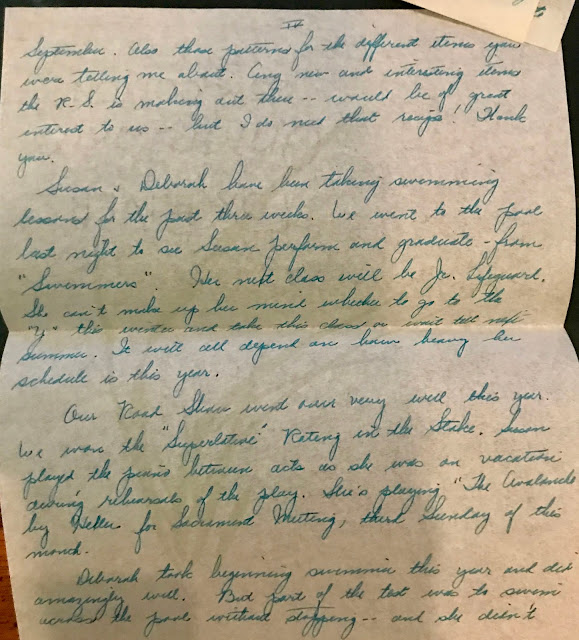 IV
September. Also those patterns for the different items you
were telling me about. Any new and interesting items
the R.S. is making out there -- would be of great
interest to us -- but I do need that recipe! Thank
you.
Susan & Deborah have been taking swimming
lessons for the past three weeks. We went to the pool
last night to see Susan perform and graduate - from
"Swimmers". Her next class will be Jr. Lifeguard.
She can't make up her mind whether to go to the
"Y" this winter and take this class or wait till next
summer. It will all depend on how heavy her
schedule is this year.
Our Road Show went over very well this year.
We won the "Superlative" Rating in the Stake. Susan
played the piano between acts as she was on vacation
during rehearsals of the play. She's playing "The Avalanche
by Heller for Sacrament Meeting, third Sunday of this
month.
Deborah took beginning swimmer this year and did
amazingly well. But part of the test was to swim
across the pool without stopping -- and she didn't